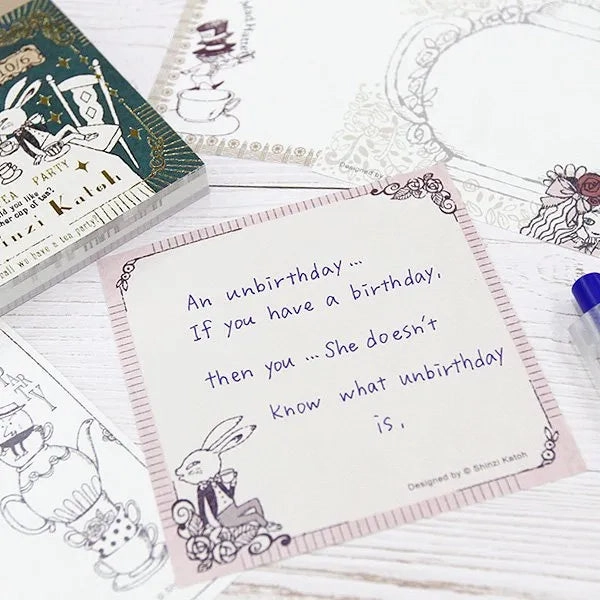 Mad Hatter
10/6
TEA PARTY
her cup of tea?
Shinzi Katoh
all we have a tea party?
Designed by
An unbirthday...
If you have a birthday,
then you... She doesn't
know what unbirthday
is.
Designed by © Shinzi Katoh